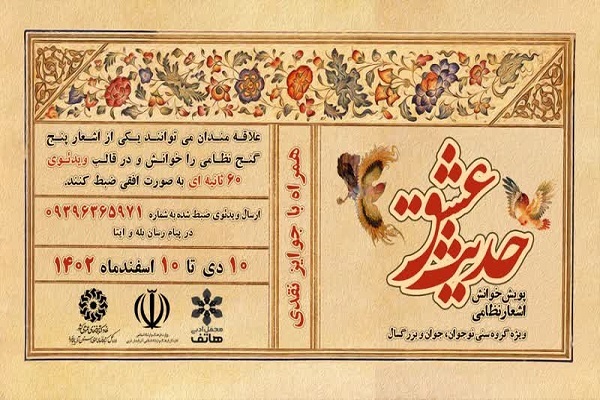 حدیث عشق
پویش خوانش
اشعار نظامی
ویژه گروه سنی نوجوان، جوان و بزرگسال
همراه با جوایز نقدی
علاقه مندان می توانند یکی از اشعار پنج
گنج نظامی را خوانش و در قالب ویدئوی
۶۰ ثانیه ای به صورت افقی ضبط کنند.
ارسال ویدئوی ضبط شده به شماره ۰۹۳۹۶۳۶۵۹۷۱
در پیام رسان بله و ایتا
۱۰ دی تا ۱۰ اسفندماه ۱۴۰۲
محفل ادبی
هاتف